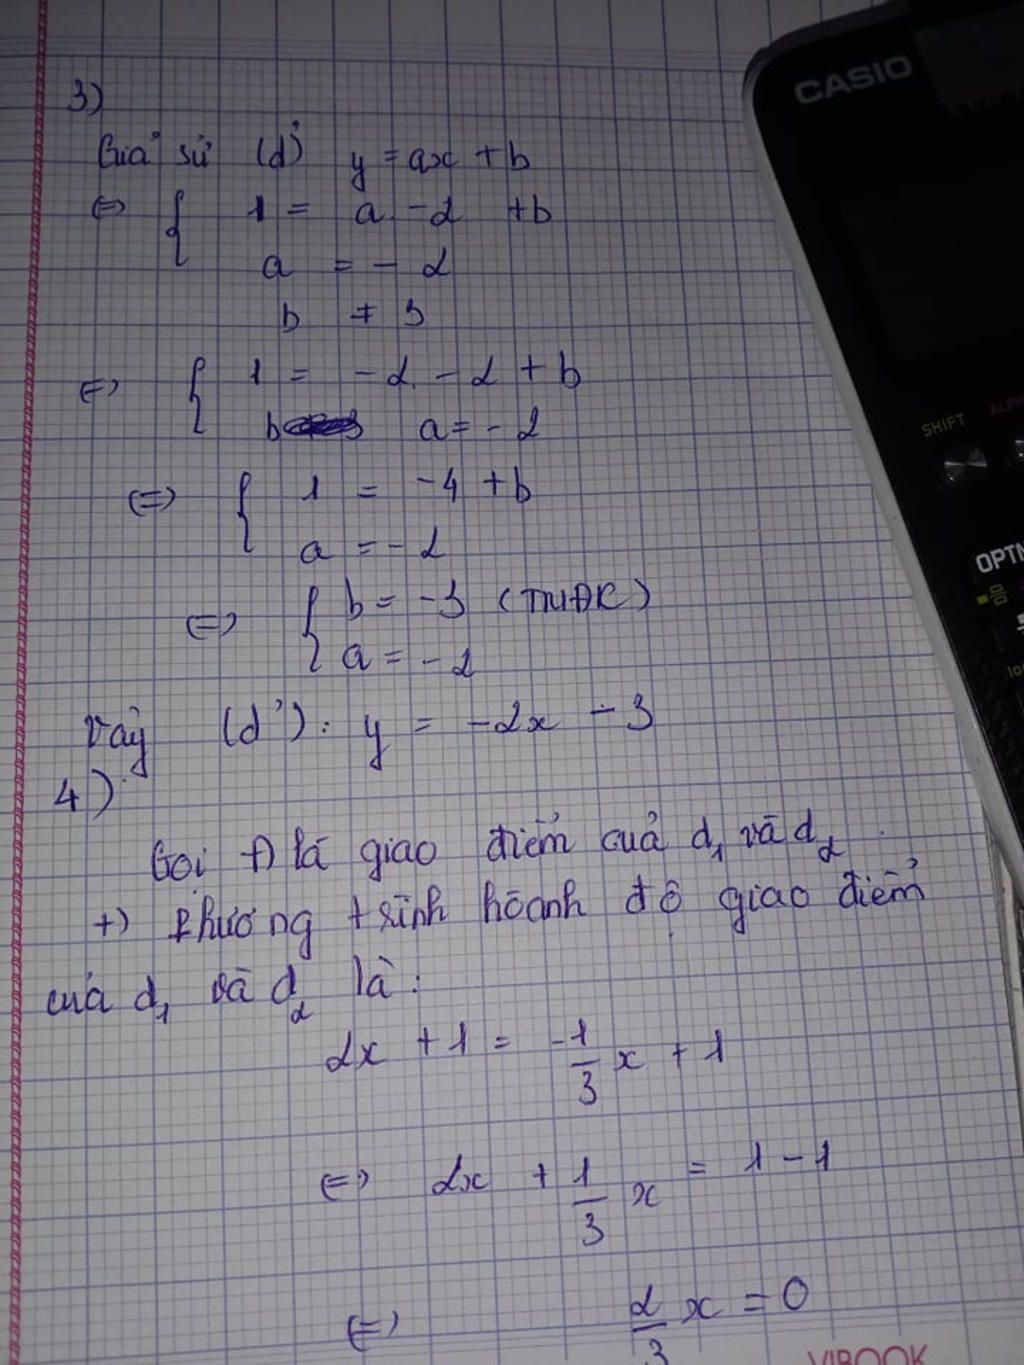 3)
Giả sử (d') y = ax + b
⇔ { 1 = a.-2 + b
a = -2
b ≠ 3
⇔ { 1 = -2.-2 + b
b a = -2
⇔ { 1 = -4 + b
a = -2
⇔ { b = -3 (TMĐK)
a = -2
Vậy (d'): y = -2x - 3
4)
Gọi A là giao điểm của d₁ và d₂.
+) Phương trình hoành độ giao điểm
của d₁ và d₂ là:
2x + 1 = -1/3 x + 1
⇔ 2x + 1/3 x = 1 - 1
⇔ 2/3 x = 0
CASIO
SHIFT
OPTN
VIBOOK